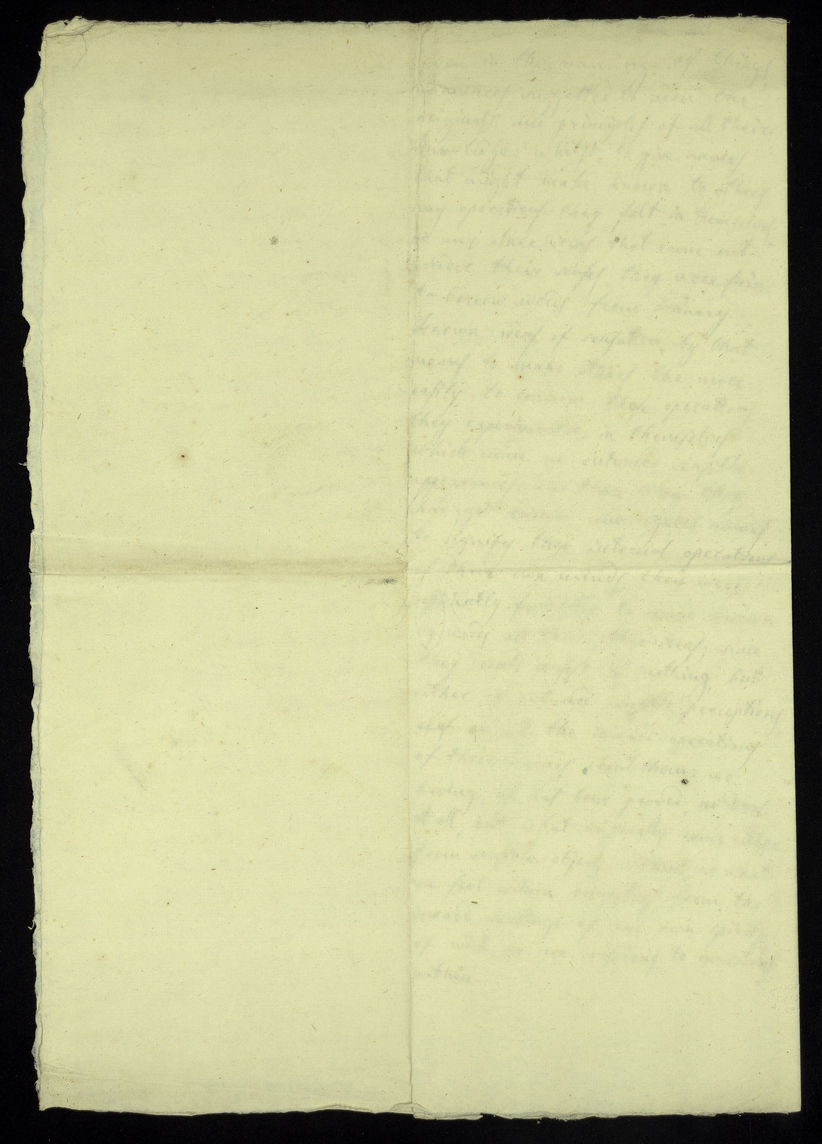 even in the naming of things
unawares suggested to men the
originals and principles of all their
knowledge: whilst, to give names
that might make known to others
any operations they felt in themselves
or any other ideas that came not
under their senses they were fain
to borrow words from ordinary
known ideas of sensation, by that
means to make others the more
easily to conceive those operations
they experimented in themselves
which made no outward sensible
appearances; and then when they
had got known names
to signify those internal operations
of their own minds they were
sufficiently to make known
by words all their other ideas, since
they could consist of nothing but
either of outward sensible perceptions
or of the inward operations
of their minds about them; we
having as has been proved no ideas
at all, but what originally come either
from sensible objects without or what
we feel within ourselves from the
inward workings of our own spirits
of we are conscious to
within.